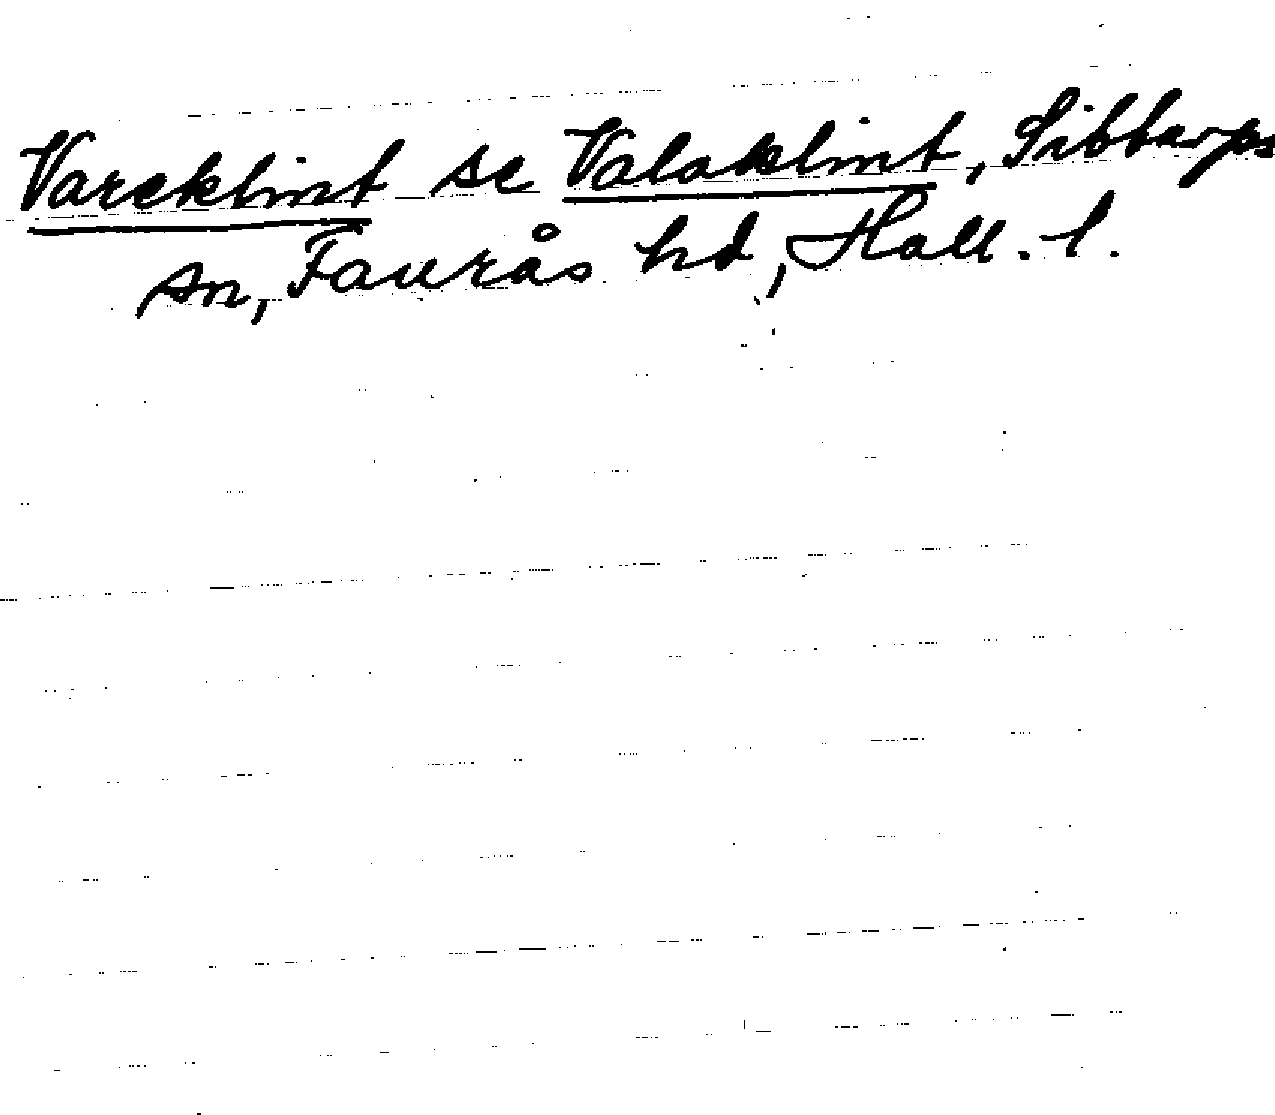 Vareklint se Valaklint, Sibbarps
sn, Faurås hd, Hall. l.